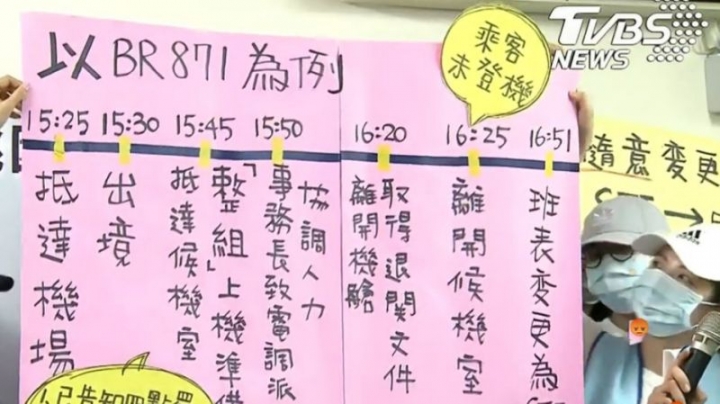 TVBS
NEWS
以BR871為例
乘客
未登機
15:25 15:30 15:45 15:50 16:20 16:25 16:51
抵達機場
出境
抵達候機室
「整組」上機準備
事務長致電調派
協調人力
取得退關文件
離開機艙
離開候機室
班表變更為
隨意變更